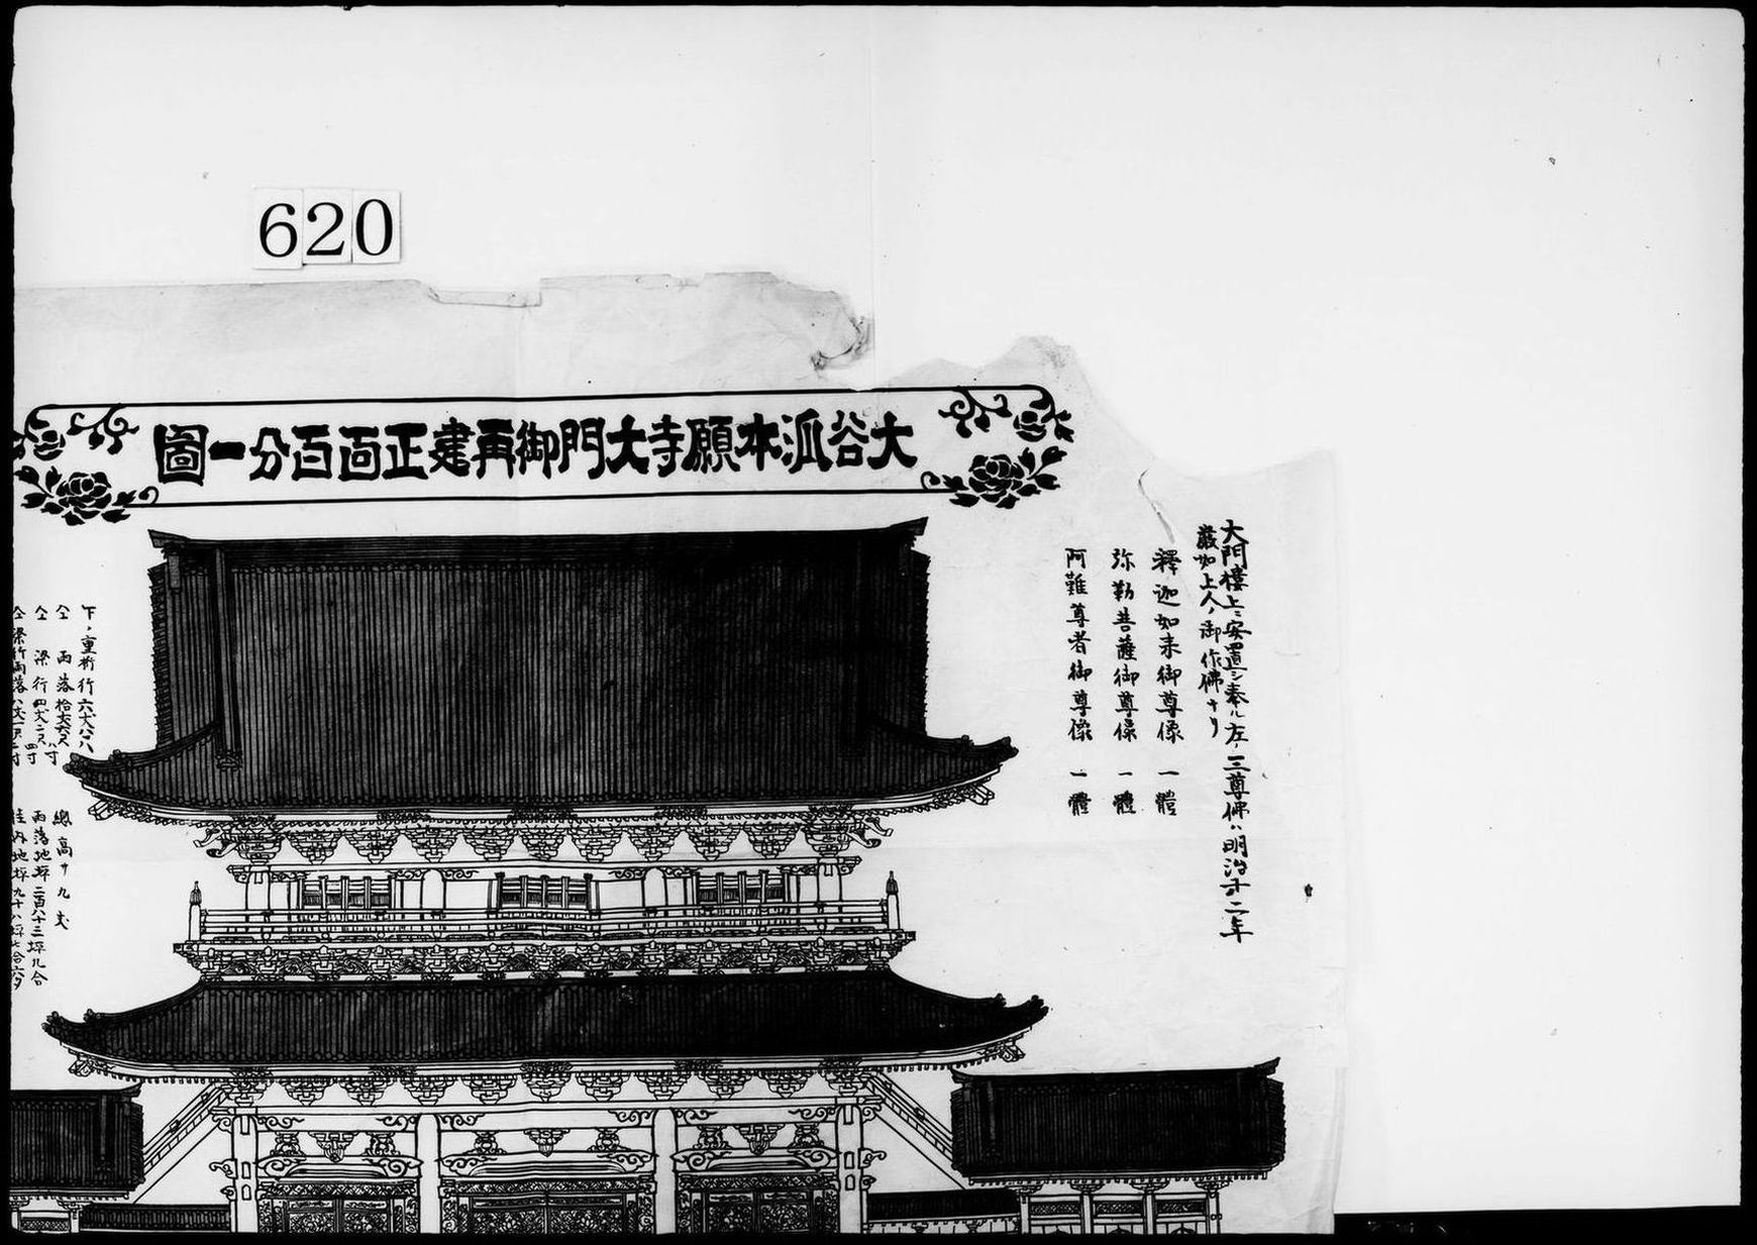 620
大谷派本願寺大門御再建正面百分一圖
大門樓上ニ安置シ奉ル左ノ三尊佛ハ明治十二年
嚴如上人ノ御作佛ナリ
釋迦如来御尊像 一體
弥勒菩薩御尊像 一體
阿難尊者御尊像 一體
下ノ重桁行六丈八八
仝 雨落拾丈六尺八寸
仝 梁行四丈二尺四寸
仝 梁行雨落八丈一尺二寸
總高サ九丈
雨落地坪二百八十三坪九合
柱内地坪九十八坪七合六夕